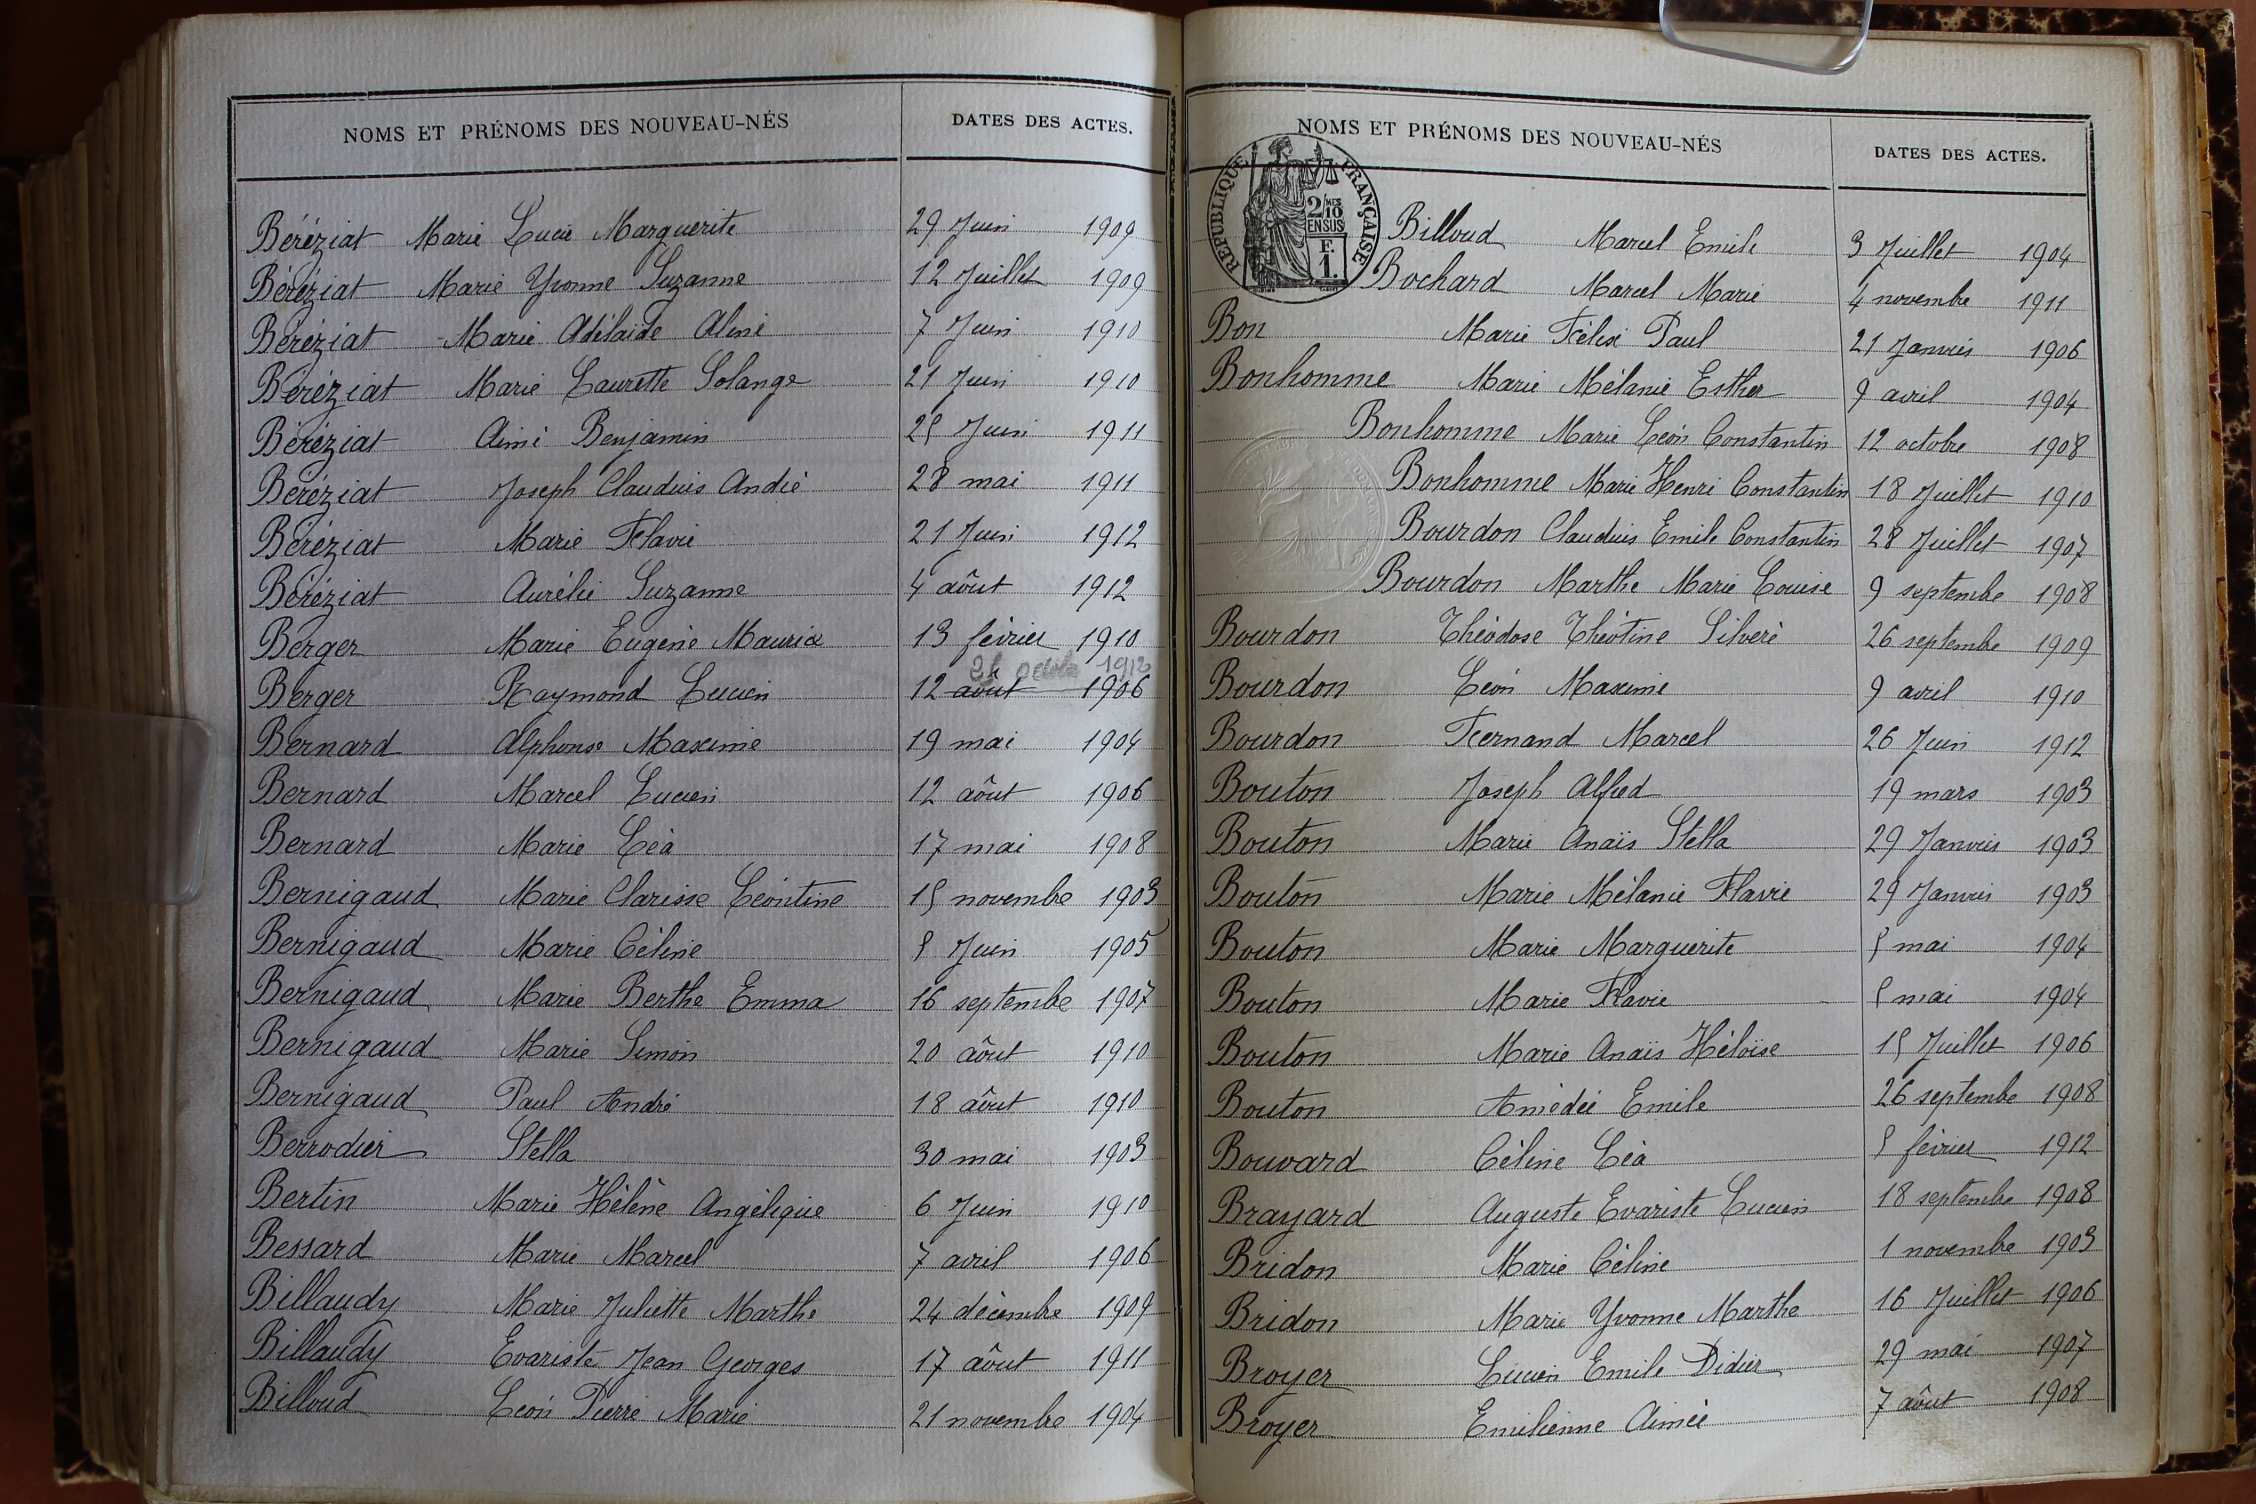 NOMS ET PRÉNOMS DES NOUVEAU-NÉS DATES DES ACTES.
Béréziat Marie Lucie Marguerite 29 Juin 1909
Béréziat Marie Yvonne Suzanne 12 Juillet 1909
Béréziat Marie Adélaïde Aline 7 Juin 1910
Béréziat Marie Laurette Solange 21 Juin 1910
Béréziat Aimé Benjamin 25 Juin 1911
Béréziat Joseph Claudius André 28 mai 1911
Béréziat Marie Flavie 21 Juin 1912
Béréziat Aurélie Suzanne 4 aôut 1912
Berger Marie Eugène Maurice 13 février 1910
octobre 1912
Berger Raymond Lucien 12 aôut 1906
Bernard Alphonse Maxime 19 mai 1904
Bernard Marcel Lucien 12 aôut 1906
Bernard Marie Léa 17 mai 1908
Bernigaud Marie Clarisse Léontine 15 novembre 1903
Bernigaud Marie Céline 5 Juin 1905
Bernigaud Marie Berthe Emma 16 septembre 1907
Bernigaud Marie Simon 20 aôut 1910
Bernigaud Paul André 18 aôut 1910
Berrodier Stella 30 mai 1903
Bertin Marie Hélène Angélique 6 Juin 1910
Bessard Marie Marcel 7 avril 1906
Billaudy Marie Juliette Marthe 24 décembre 1909
Billaudy Evariste Jean Georges 17 aôut 1911
Billoud Léon Pierre Marie 21 novembre 1904
NOMS ET PRÉNOMS DES NOUVEAU-NÉS DATES DES ACTES.
RÉPUBLIQUE FRANÇAISE
2/10 MES
EN SUS
F.
1.
Billoud Marcel Emile 3 Juillet 1904
Bochard Marcel Marie 4 novembre 1911
Bon Marie Félix Paul 21 Janvier 1906
Bonhomme Marie Mélanie Esther 9 avril 1904
Bonhomme Marie Léon Constantin 12 octobre 1908
Bonhomme Marie Henri Constantin 18 Juillet 1910
Bourdon Claudius Emile Constantin 28 Juillet 1907
Bourdon Marthe Marie Louise 9 septembre 1908
Bourdon Théodose Théotine Silvère 26 septembre 1909
Bourdon Léon Maxime 9 avril 1910
Bourdon Fernand Marcel 26 Juin 1912
Bouton Joseph Alfred 19 mars 1903
Bouton Marie Anaïs Stella 29 Janvier 1903
Bouton Marie Mélanie Flavie 29 Janvier 1903
Bouton Marie Marguerite 5 mai 1904
Bouton Marie Flavie 5 mai 1904
Bouton Marie Anaïs Héloïse 15 Juillet 1906
Bouton Amédée Emile 26 septembre 1908
Bouvard Céline Léa 5 février 1912
Brayard Auguste Evariste Lucien 18 septembre 1908
Bridon Marie Céline 1 novembre 1903
Bridon Marie Yvonne Marthe 16 Juillet 1906
Broyer Lucien Emile Didier 29 mai 1907
Broyer Emilienne Aimée 7 aôut 1908